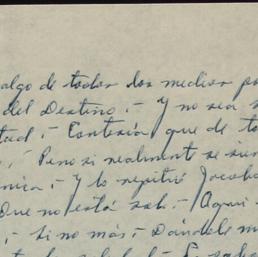 algo de todos los medios po
del Destino.- Y no sea
tud.- Contesía que de to
.- Pero si realmente se sien
mia.- Y lo repitió Jacob
Que no está sab.- Aqui
.- Si no más.- Dándele m